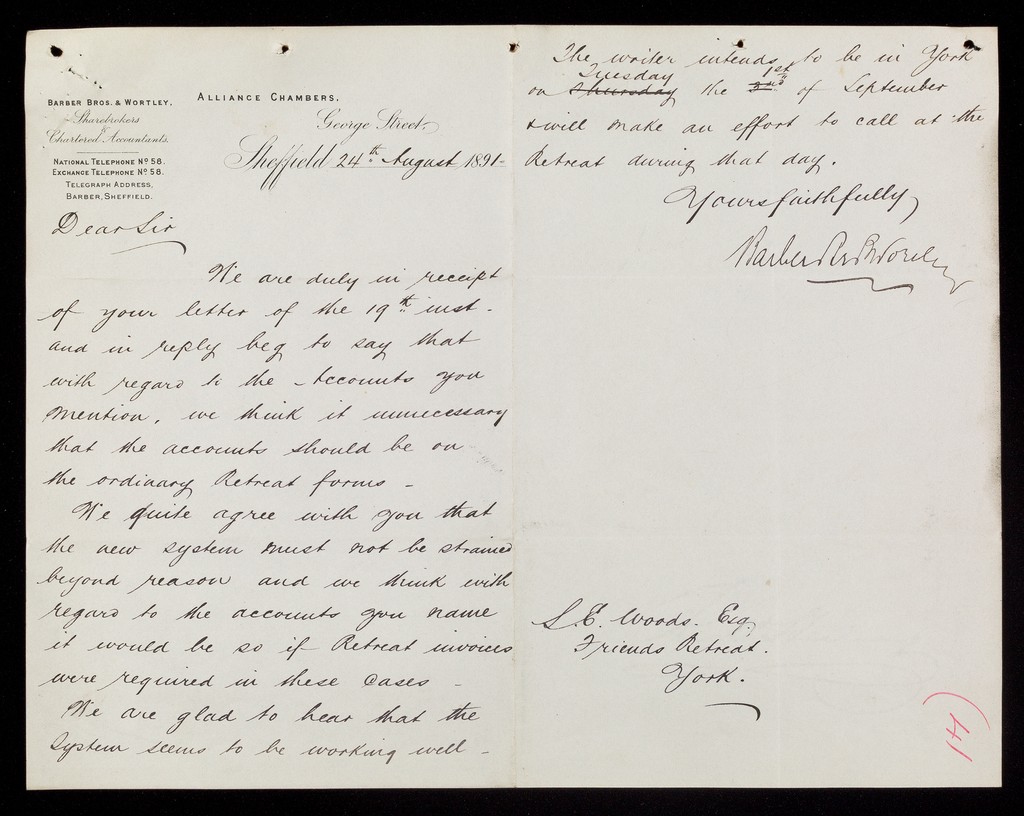 BARBER BROS. & WORTLEY.
Sharebrokers
&
Chartered Accountants.
NATIONAL TELEPHONE Nº 58.
EXCHANGE TELEPHONE Nº 58.
TELEGRAPH ADDRESS,
BARBER, SHEFFIELD.
ALLIANCE CHAMBERS,
George Street,
Sheffield 24th August 1891-
Dear Sir
We are duly in receipt
of your letter of the 19th inst.
and in reply beg to say that
with regard to the Accounts you
mention, we think it unnecessary
that the accounts should be on
the ordinary Retreat forms -
We quite agree with you that
the new system must not be strained
beyond reason and we think with
regard to the accounts you name
it would be so if Retreat invoices
were required in these cases -
We are glad to hear that the
system seems to be working well -
The writer intends to be in York
Tuesday 1st
on Thursday the 3rd of September
& will make an effort to call at the
Retreat during that day.
Yours faithfully
Barber Bros & Wortley
S. E. Woods. Esq.
Friends Retreat.
York.